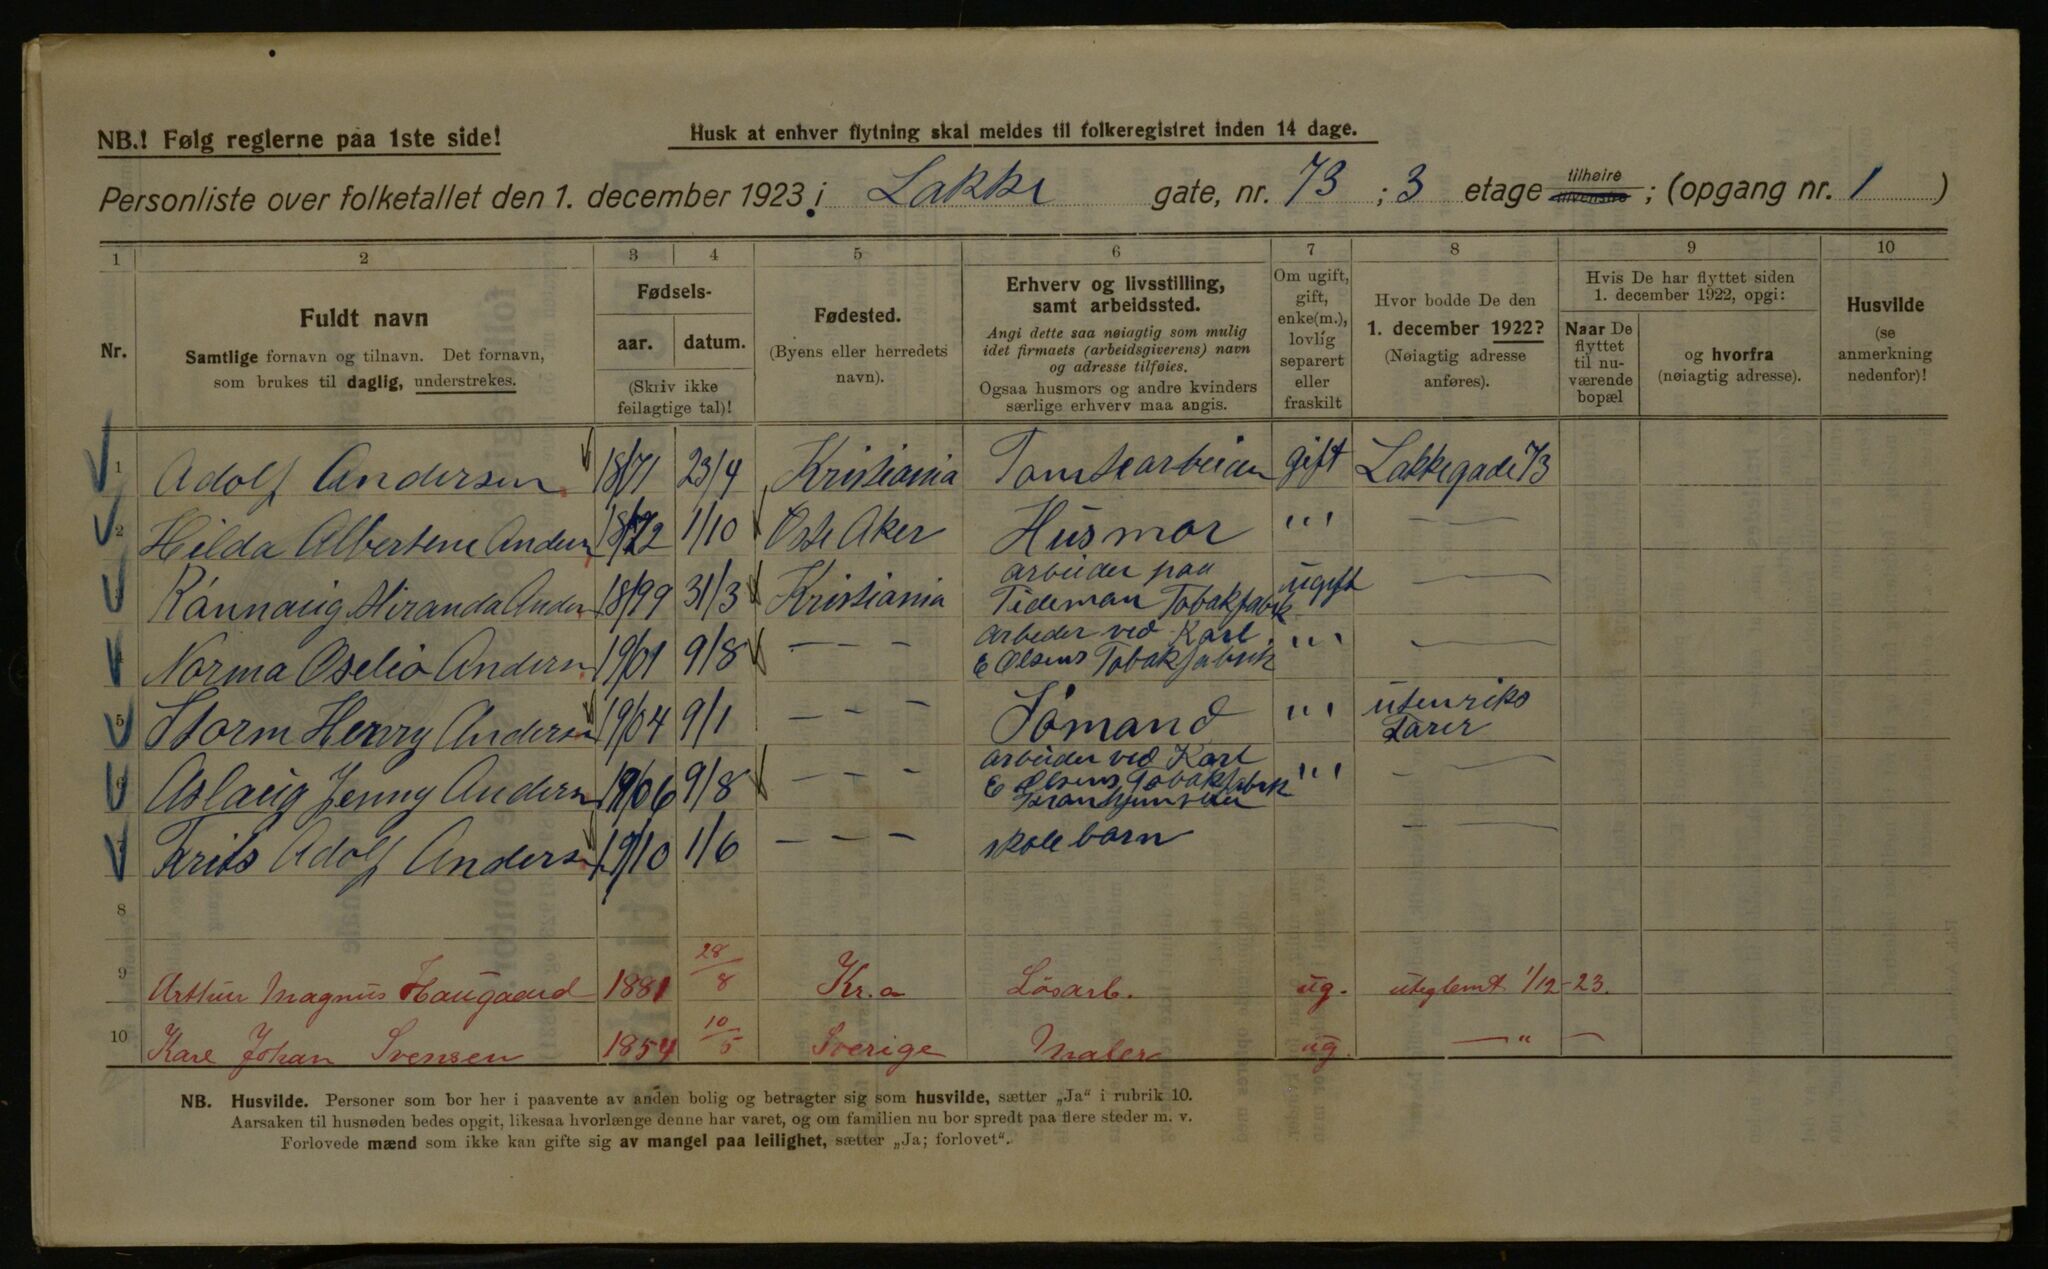 NB.! Følg reglerne paa 1ste side!
Husk at enhver flytning skal meldes til folkeregistret inden 14 dage.
Personliste over folketallet den 1. december 1923 i Lakke gate, nr. 73 ; 3 etage tilhøire tilvenstre ; (opgang nr. 1 )
1 2 3 4 5 6 7 8 9 10
Nr.
Fuldt navn
Samtlige fornavn og tilnavn. Det fornavn,
som brukes til daglig, understrekes.
Fødsels-
aar. datum.
(Skriv ikke
feilagtige tal)!
Fødested.
(Byens eller herredets
navn).
Erhverv og livsstilling,
samt arbeidssted.
Angi dette saa nøiagtig som mulig
idet firmaets (arbeidsgiverens) navn
og adresse tilføies.
Ogsaa husmors og andre kvinders
særlige erhverv maa angis.
Om ugift,
gift,
enke(m.),
lovlig
separert
eller
fraskilt
Hvor bodde De den
1. december 1922?
(Nøiagtig adresse
anføres).
Hvis De har flyttet siden
1. december 1922, opgi:
Naar De
flyttet
til nu-
værende
bopæl
og hvorfra
(nøiagtig adresse).
Husvilde
(se
anmerkning
nedenfor)!
1 Adolf Andersen 18/71 23/4 Kristiania Tomtearbeider gift Lakkegade 73
2 Hilda Albertene Andersn 18/72 1/10 Østr Aker Husmor " " —
Kristiania arbeider paa
Rannaug Miranda Ander 18/99 31/3 Tideman Tobakfabrik ugift —
arbeder ved Karl
4 Norma Oselio Andersn 19/01 9/8 — — — E Olsens Tobakfabrik " " —
5 Storm Henry Andersn 19/04 9/1 — — — Sømand " " utenriks
Farer
arbeider ved Karl
Aslaug Jenny Andersn 19/06 9/8 — — — E Olsens Tobakfabrik " " —
Frits Adolf Andersn 19/10 1/6 — — — skolebarn —
8
9 Arthur Magnus Haugaard 1881 28/8 Kr.a Løsarb. ug. uteglemt 1/12-23.
10 Karl Johan Svensen 1854 10/5 Sverige Maler ug. — " —
NB. Husvilde. Personer som bor her i paavente av anden bolig og betragter sig som husvilde, sætter „Ja" i rubrik 10.
Aarsaken til husnøden bedes opgit, likesaa hvorlænge denne har varet, og om familien nu bor spredt paa flere steder m. v.
Forlovede mænd som ikke kan gifte sig av mangel paa leilighet, sætter „Ja; forlovet".